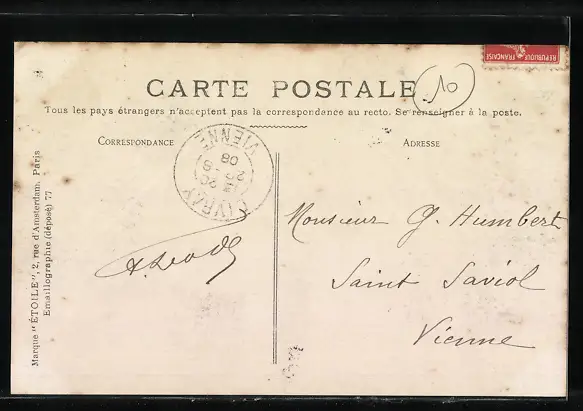 RÉPUBLIQUE FRANÇAISE
CARTE POSTALE
10
Tous les pays étrangers n'acceptent pas la correspondance au recto. Se renseigner à la poste.
CORRESPONDANCE
ADRESSE
VIENNE
08
Monsieur G. Humbert
Saint Saviol
Vienne
Marque "ÉTOILE", 2, rue d'Amsterdam, Paris
Emaillographie (déposé) 77